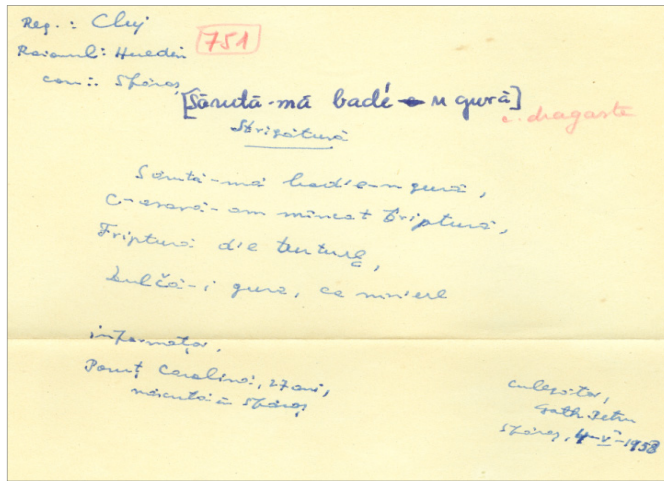 Reg.: Cluj
751
Raionul: Huedin
com.: Sfăraș
[Sărută-mă badé-n gură]
c. dragoste
Strigătură
Sărută-mă badie-n gură,
C-asară-am mîncat friptură,
Friptură die turture,
Dulčă-i gura, ca miere
informator,
Ponuț Carolina, 27 ani,
născută în Sfăraș
culegător,
Gath Petru
Sfăraș, 4-V-1958